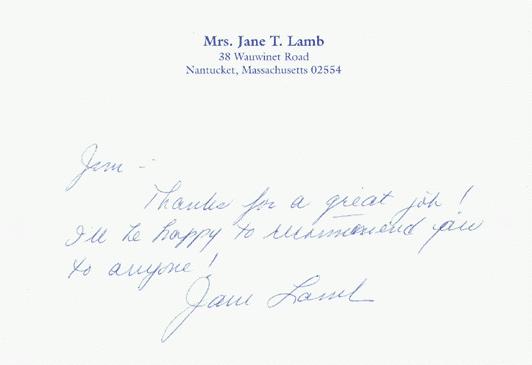 Mrs. Jane T. Lamb
38 Wauwinet Road
Nantucket, Massachusetts 02554
Jim -
Thanks for a great job!
I'll be happy to recommend you
to anyone!
Jane Lamb